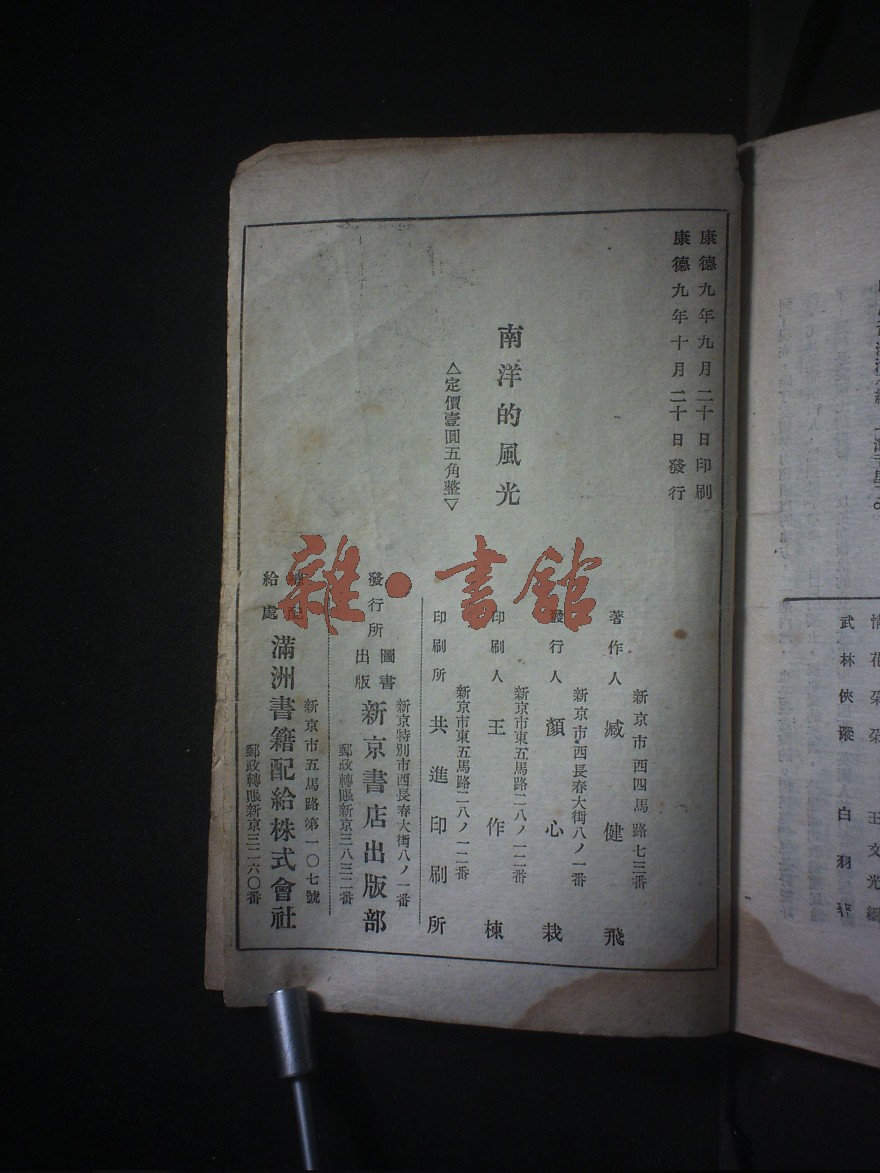 康德九年九月二十日印刷
康德九年十月二十日發行
南洋的風光
△定價壹圓五角整▽
新京市西四馬路七三番
著作人 臧健飛
新京市西長春大街八ノ一番
發行人 顏心栽
新京市東五馬路二八ノ一二番
印刷人 王作棟
新京市東五馬路二八ノ一二番
印刷所 共進印刷所
新京特別市西長春大街八ノ一番
發行所 圖書出版 新京書店出版部
郵政轉賬新京三八三二番
新京市五馬路第一〇七號
配給處 滿洲書籍配給株式會社
郵政轉賬新京三二六〇番
雜·書館
王文光編
武林俠蹤 白羽